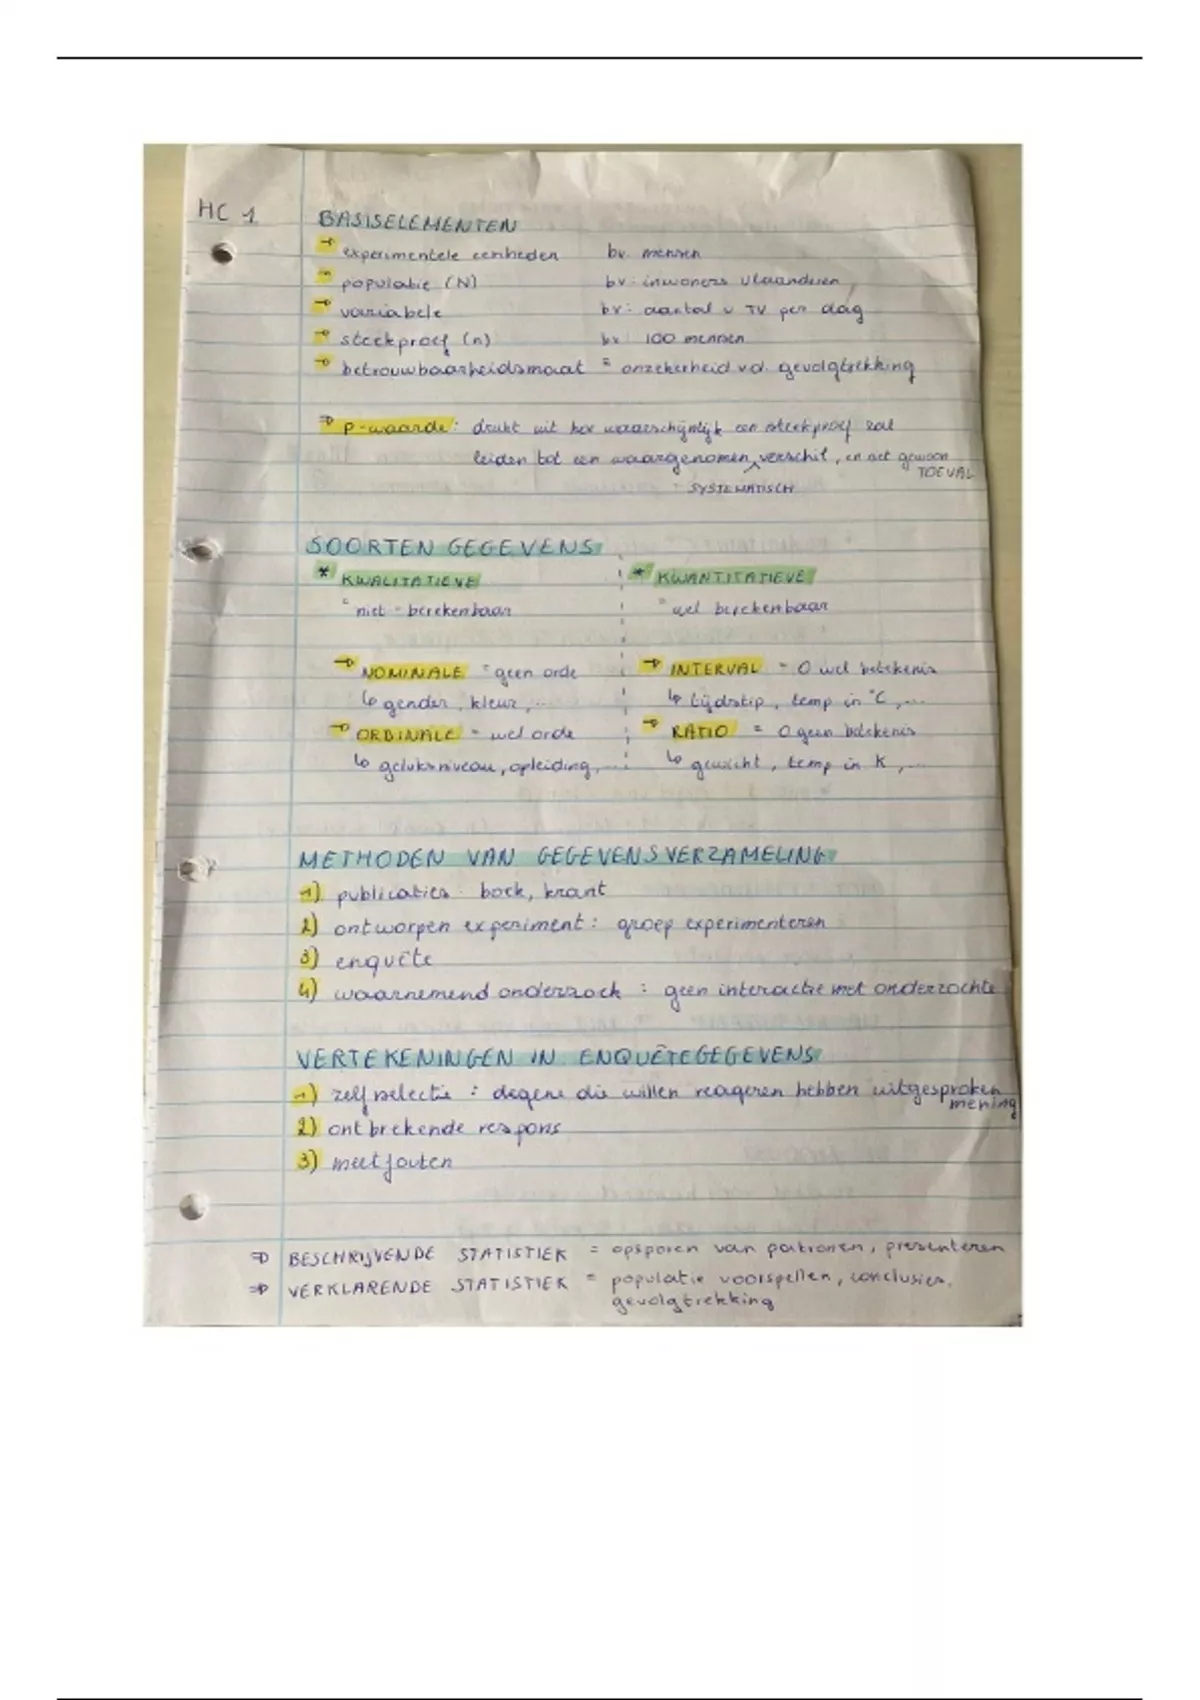 HC 1
BASISELEMENTEN
→ experimentele eenheden bv. mensen
→ populatie (N) bv: inwoners Vlaanderen
→ variabele bv: aantal u TV per dag
→ steekproef (n) bv 100 mensen
→ betrouwbaarheidsmaat = onzekerheid v.d. gevolgtrekking
⇒ p-waarde: drukt uit hoe waarschijnlijk een steekproef zal
leiden tot een waargenomen verschil, en niet gewoon
TOEVAL
SYSTEMATISCH
SOORTEN GEGEVENS
* KWALITATIEVE * KWANTITATIEVE
= niet-berekenbaar = wel berekenbaar
→ NOMINALE = geen orde → INTERVAL = 0 wel betekenis
↳ gender, kleur, ... ↳ tijdstip, temp in °C, ...
→ ORDINALE = wel orde → RATIO = 0 geen betekenis
↳ geluksniveau, opleiding, ... ↳ gewicht, temp in K, ...
METHODEN VAN GEGEVENSVERZAMELING
1) publicaties: boek, krant
2) ontworpen experiment: groep experimenteren
3) enquête
4) waarnemend onderzoek : geen interactie met onderzochte
VERTEKENINGEN IN ENQUÊTEGEGEVENS
1) zelfselectie : degene die willen reageren hebben uitgesproken
mening
2) ontbrekende respons
3) meetfouten
⇒ BESCHRIJVENDE STATISTIEK = opsporen van patronen, presenteren
⇒ VERKLARENDE STATISTIEK = populatie voorspellen, conclusies,
gevolgtrekking